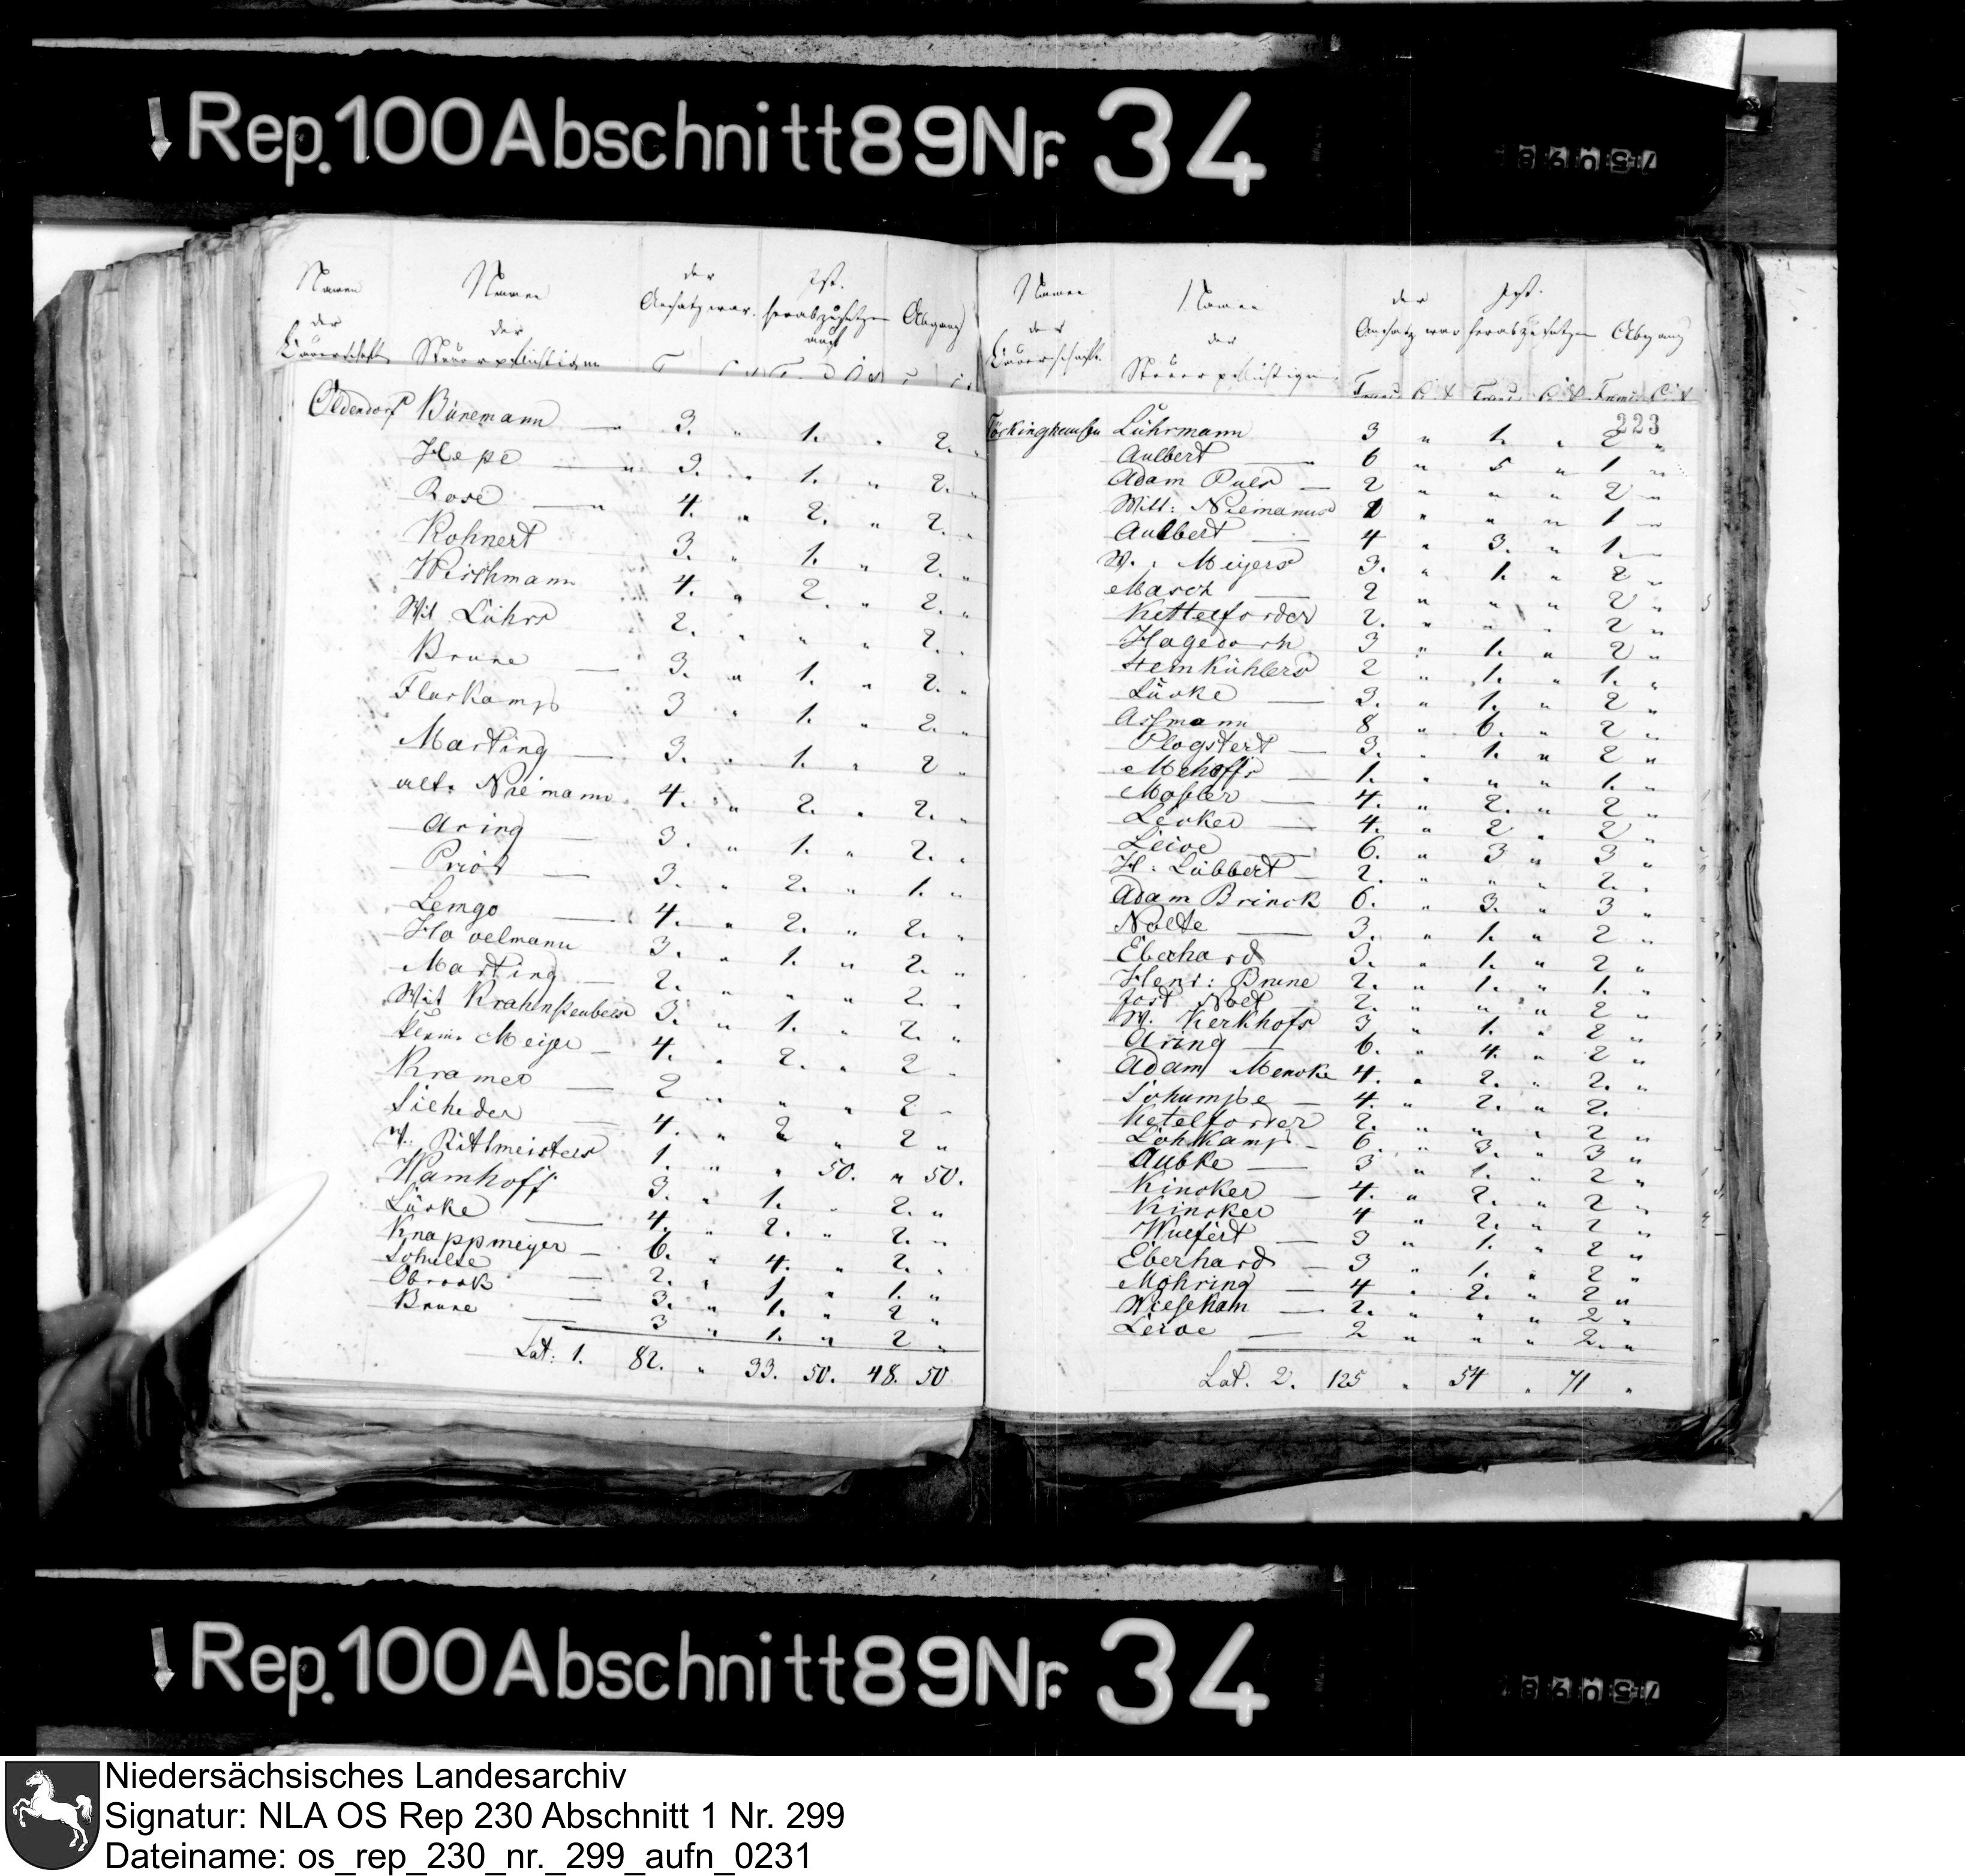 Rep. 100 Abschnitt 89 Nr. 34
Namen der Bauerschaft Namen der Steuerpflichtigen der Ansatz war. Ist. herabzusetzen auf Abgang
Oldendorf Bünemann — 3. " 1. " 2. "
Hepe — 3. " 1. " 2. "
Rose — 4. " 2. " 2. "
Kohnert 3. " 1. " 2. "
Wischmann 4. " 2. " 2. "
Wit Lührs 2. " " " 2. "
Brune — 3. " 1. " 2. "
Flaskamp 3 " 1. " 2. "
Marting — 3. " 1. " 2 "
alt. Niemann 4. " 2. " 2. "
Aring — 3. " 1. " 2. "
Priot — 3. " 2. " 1. "
Lemgo — 4. " 2. " 2. "
Hovelmann 3. " 1. " 2. "
Marting — 2. " " " 2. "
Wit 3. " 1. " 2. "
Meyer — 4. " 2. " 2 "
Kramer — 2 " " " 2 "
Sieheder — 4. " 2 " 2 "
W. Rittmeisters 1. " " 50. " 50.
Wamhoff 3. " 1. " 2. "
Lücke — 4. " 2. " 2. "
Knappmeyer — 6. " 4. " 2. "
Schulte — 2. " 1 " 1. "
Obrock — 3. " 1. " 2 "
Brune — 3 " 1. " 2 "
Lat: 1. 82. " 33. 50. 48. 50
Namen der Bauerschaft Namen der Steuerpflichtigen der Ansatz war Ist. herabzusetzen Abgang
Franc. Ct Franc. Ct Franc. Ct
223
Föckinghausen Lührmann 3 " 1. " 2 "
Aulbert — 6 " 5 " 1 "
Adam Puls — 2 " " " 2 "
Witt: Niemanns 1 " " " 1 "
Aulbert — 4 " 3. " 1. "
W. Meyers 3. " 1. " 2 "
Masch — 2 " " " 2 "
Kettelforder 2. " " " 2 "
Hagedorn 3 " 1. " 2 "
Steinkühlers 2 " 1. " 1. "
Lücke — 3. " 1. " 2 "
Assmann 8 " 6. " 2 "
Plogstert — 3. " 1. " 2 "
Mehoffs — 1. " " " 1. "
Mosler — 4. " 2. " 2 "
Lecker — 4. " 2 " 2 "
Leive — 6. " 3 " 3 "
H. Lübbert — 2. " " " 2. "
Adam Brinck 6. " 3. " 3 "
Nolte — 3. " 1. " 2 "
Eberhard 3. " 1. " 2 "
Henr: Brune 2. " 1. " 1. "
Jost Nolt — 2. " " " 2 "
W. Kerkhofs 3 " 1. " 2 "
Aring — 6. " 4. " 2 "
Adam Mencke 4. " 2. " 2. "
Schumpe — 4. " 2. " 2.
Ketelforder 2. " " " 2 "
Lohkamp — 6. " 3. " 3 "
Aubke — 3 " 1. " 2 "
Kincker — 4. " 2. " 2 "
Kincker 4 " 2. " 2 "
Wulfert — 3 " 1. " 2 "
Eberhard — 3 " 1. " 2 "
Mohring — 4 " 2. " 2 "
Wiesehan — 2. " " " 2 "
Leive — 2 " " " 2. "
Lat. 2. 125 " 54 " 71 "
Rep. 100 Abschnitt 89 Nr. 34
Niedersächsisches Landesarchiv
Signatur: NLA OS Rep 230 Abschnitt 1 Nr. 299
Dateiname: os_rep_230_nr._299_aufn_0231